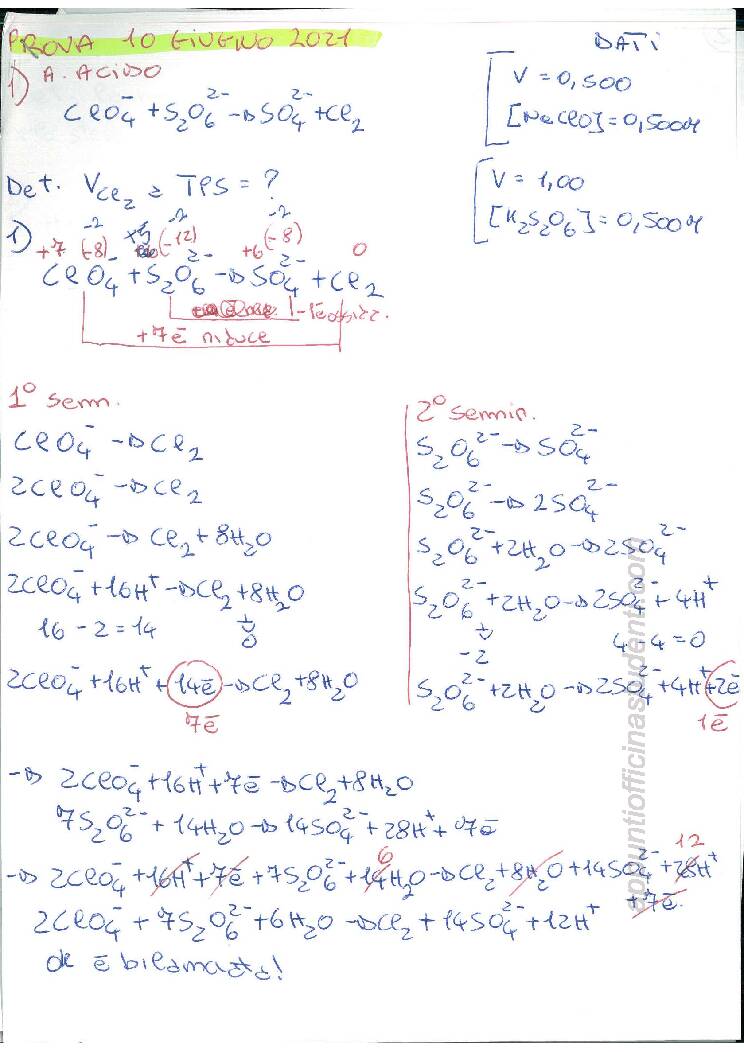 PROVA 10 GIUGNO 2021
1) A. ACIDO
ClO₄⁻ + S₂O₆²⁻ → SO₄²⁻ + Cl₂
DATI
V = 0,500
[NaClO] = 0,500M
V = 1,00
[K₂S₂O₆] = 0,500M
Det. V Cl₂ a TPS = ?
1)
-2 -2 -2
+7 (-8) +5 (-12) +6 (-8) 0
ClO₄⁻ + S₂O₆²⁻ → SO₄²⁻ + Cl₂
-1ē ossizz.
+7ē riduce
1° sem.
ClO₄⁻ → Cl₂
2ClO₄⁻ → Cl₂
2ClO₄⁻ → Cl₂ + 8H₂O
2ClO₄⁻ + 16H⁺ → Cl₂ + 8H₂O
16 - 2 = 14 0
2ClO₄⁻ + 16H⁺ + 14ē → Cl₂ + 8H₂O
7ē
2° semir.
S₂O₆²⁻ → SO₄²⁻
S₂O₆²⁻ → 2SO₄²⁻
S₂O₆²⁻ + 2H₂O → 2SO₄²⁻
S₂O₆²⁻ + 2H₂O → 2SO₄²⁻ + 4H⁺
-2 4 - 4 = 0
S₂O₆²⁻ + 2H₂O → 2SO₄²⁻ + 4H⁺ + 2ē
1ē
→ 2ClO₄⁻ + 16H⁺ + 7ē → Cl₂ + 8H₂O
7S₂O₆²⁻ + 14H₂O → 14SO₄²⁻ + 28H⁺ + 7ē
6 12
→ 2ClO₄⁻ + 16H⁺ + 7ē + 7S₂O₆²⁻ + 14H₂O → Cl₂ + 8H₂O + 14SO₄²⁻ + 28H⁺
+ 7ē
2ClO₄⁻ + 7S₂O₆²⁻ + 6H₂O → Cl₂ + 14SO₄²⁻ + 12H⁺
ok è bilanciata!
appuntiofficinastudenti.com